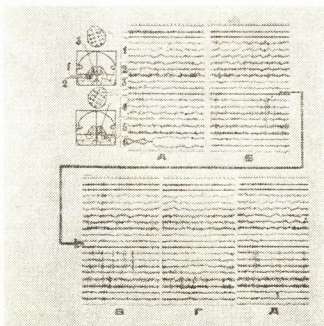 3
1
2
1
2
3
4
5
6
А Б
В Г Д